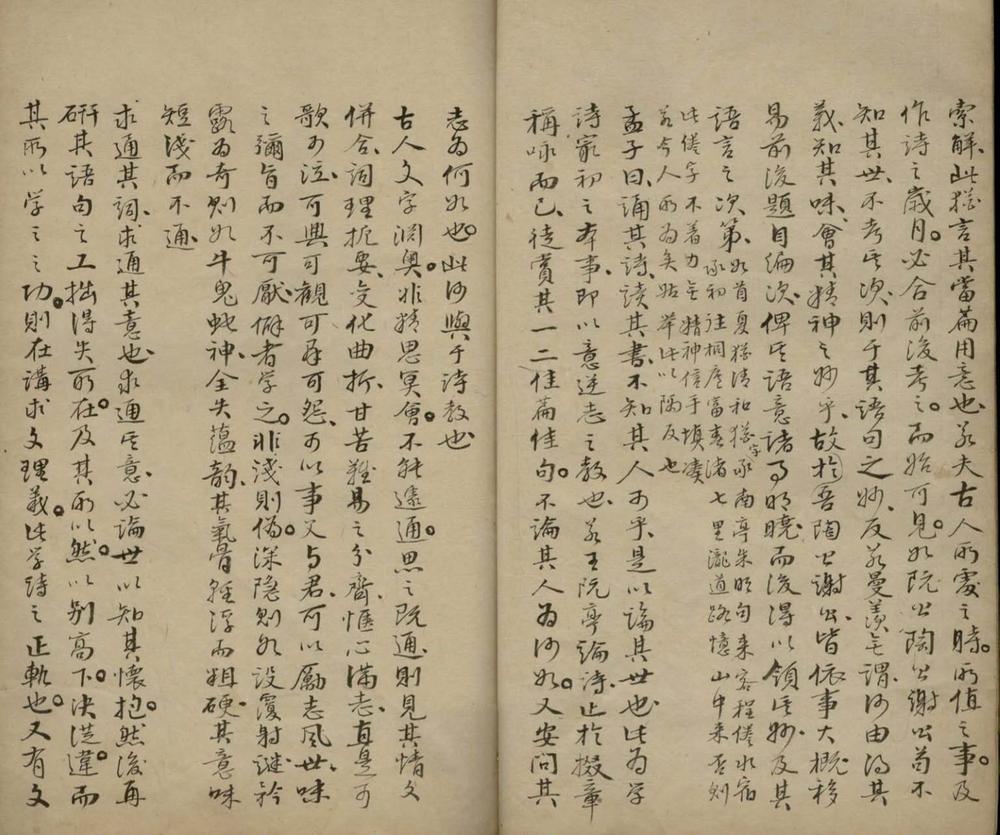 索解、此猶言其當篇用意也、若夫古人所處之時。所值之事。及
作詩之歲月。必合前後考之。而始可見。如阮公陶公謝公苟不
知其世、不考其次、則于其語句之妙、反若曼羡無謂、何由得其
義、知其味、會其精神之妙乎、故於吾陶公謝公、皆依事大概移
易前後題目編次、俾其語意諸事明曉、而後得以領其妙、及其
語言之次第、如首夏猶清和猶字承南亭朱明句来客程倦水宿
承初往桐廬富春渚七里瀧道路憶山中来否則
此倦字不着力無精神信手填湊
若今人所為矣姑舉此以隅反也
孟子曰、誦其詩、讀其書、不知其人可乎、是以論其世也、此為学
詩家初之本事、即以意逆志之教也、若王阮亭論詩、止於掇章
稱咏而已、徒賞其一二佳篇佳句。不論其人為何如。又安問其
志為何如也。此何與于詩教也
古人文字淵奥。非精思冥會。不能遽通。思之既通、則見其情文
併合、詞理扼要、变化曲折、甘苦難易之分齊、愜心滿志、真是可
歌可泣、可興可觀可羣可怨、可以事父与君、可以勵志風世、味
之彌旨而不可厭、僻者学之。非淺則偽。深隠則如設覆射謎、矜
露為奇則如牛鬼蛇神、全失蘊韵、其氣骨輕浮而粗硬、其意味
短淺而不通
求通其詞、求通其意也、求通其意、必論世以知其懷抱。然後再
研其語句之工拙得失所在。及其所以然。以别高下。决從違。而
其所以学之之功。則在講求文理義。此学詩之正軌也。又有文